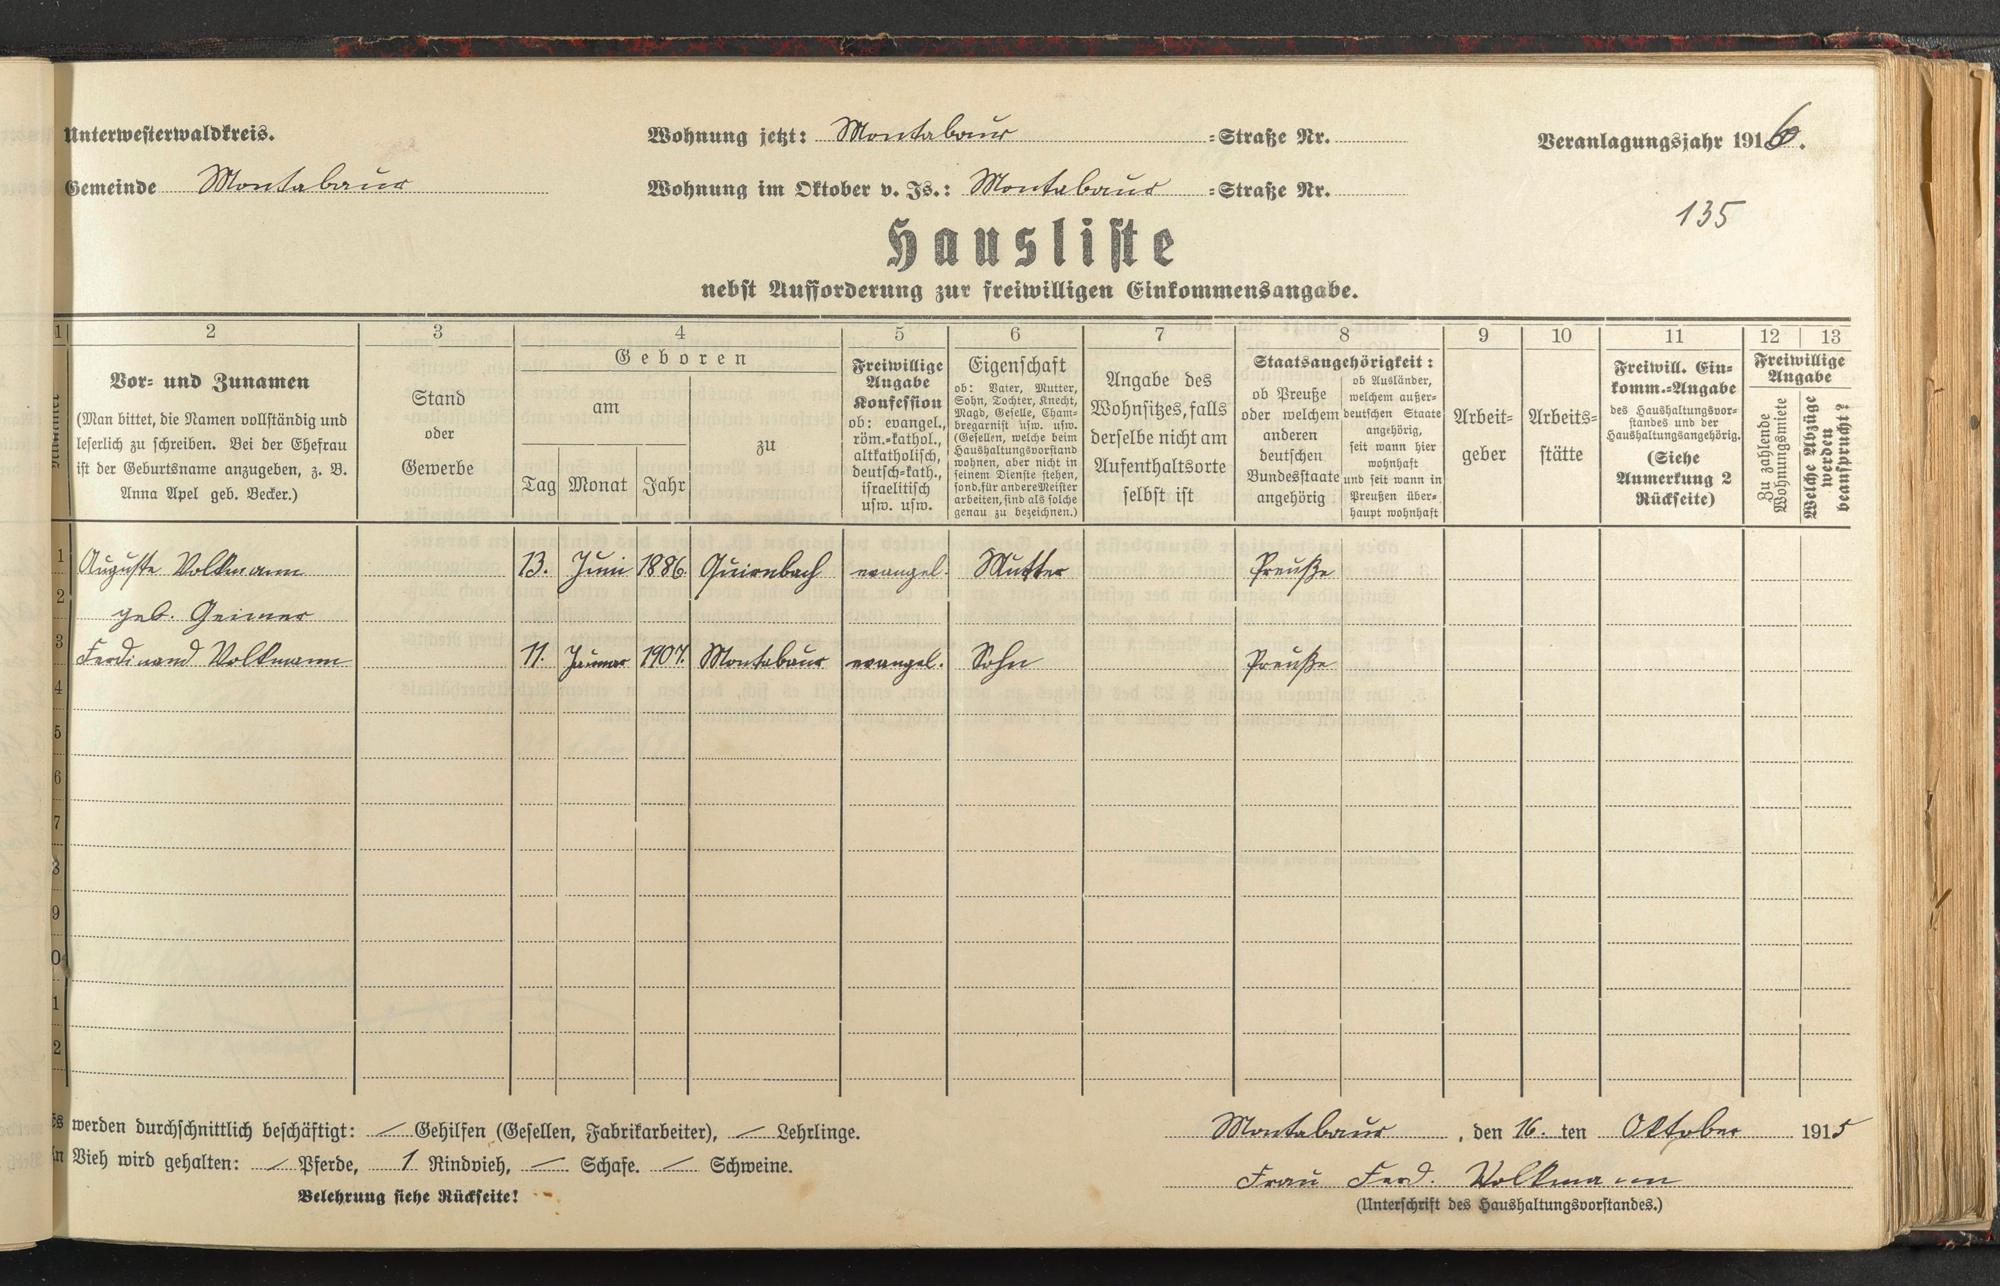 Unterwesterwaldkreis.
Gemeinde Montabaur
Wohnung jetzt: Montabaur =Straße Nr.
Wohnung im Oktober v. Js.: Montabaur =Straße Nr.
Veranlagungsjahr 1916.
135
Hausliste
nebst Aufforderung zur freiwilligen Einkommensangabe.
1 2 3 4 5 6 7 8 9 10 11 12 13
Vor= und Zunamen
(Man bittet, die Namen vollständig und
leserlich zu schreiben. Bei der Ehefrau
ist der Geburtsname anzugeben, z. B.
Anna Apel geb. Becker.)
Stand
oder
Gewerbe
Geboren
am
Tag Monat Jahr
zu
Freiwillige
Angabe
Konfession
ob: evangel.,
röm.=kathol.,
altkatholisch,
deutsch=kath.,
israelitisch
usw. usw.
Eigenschaft
ob: Vater, Mutter,
Sohn, Tochter, Knecht,
Magd, Geselle, Cham=
bregarnist usw. usw.
(Gesellen, welche beim
Haushaltungsvorstand
wohnen, aber nicht in
seinem Dienste stehen,
sond. für andere Meister
arbeiten, sind als solche
genau zu bezeichnen.)
Angabe des
Wohnsitzes, falls
derselbe nicht am
Aufenthaltsorte
selbst ist
Staatsangehörigkeit:
ob Preuße
oder welchem
anderen
deutschen
Bundesstaate
angehörig
ob Ausländer,
welchem außer=
deutschen Staate
angehörig,
seit wann hier
wohnhaft
und seit wann in
Preußen über=
haupt wohnhaft
Arbeit=
geber
Arbeits=
stätte
Freiwill. Ein=
komm.=Angabe
des Haushaltungsvor=
standes und der
Haushaltungsangehörig.
(Siehe
Anmerkung 2
Rückseite)
Freiwillige
Angabe
Zu zahlende
Wohnungsmiete
Welche Abzüge
werden
beansprucht?
1 Auguste Volkmann 13. Juni 1886. Quirnbach evangel. Mutter Preuße
2 geb. Geimer
3 Ferdinand Volkmann 11. Januar 1907. Montabaur evangel. Sohn Preuße
4
5
6
7
8
9
0
1
2
Es werden durchschnittlich beschäftigt: — Gehilfen (Gesellen, Fabrikarbeiter), — Lehrlinge.
An Vieh wird gehalten: — Pferde, 1 Rindvieh, — Schafe. — Schweine.
Belehrung siehe Rückseite!
Montabaur, den 16. ten Oktober 1915
Frau Ferd. Volkmann
(Unterschrift des Haushaltungsvorstandes.)